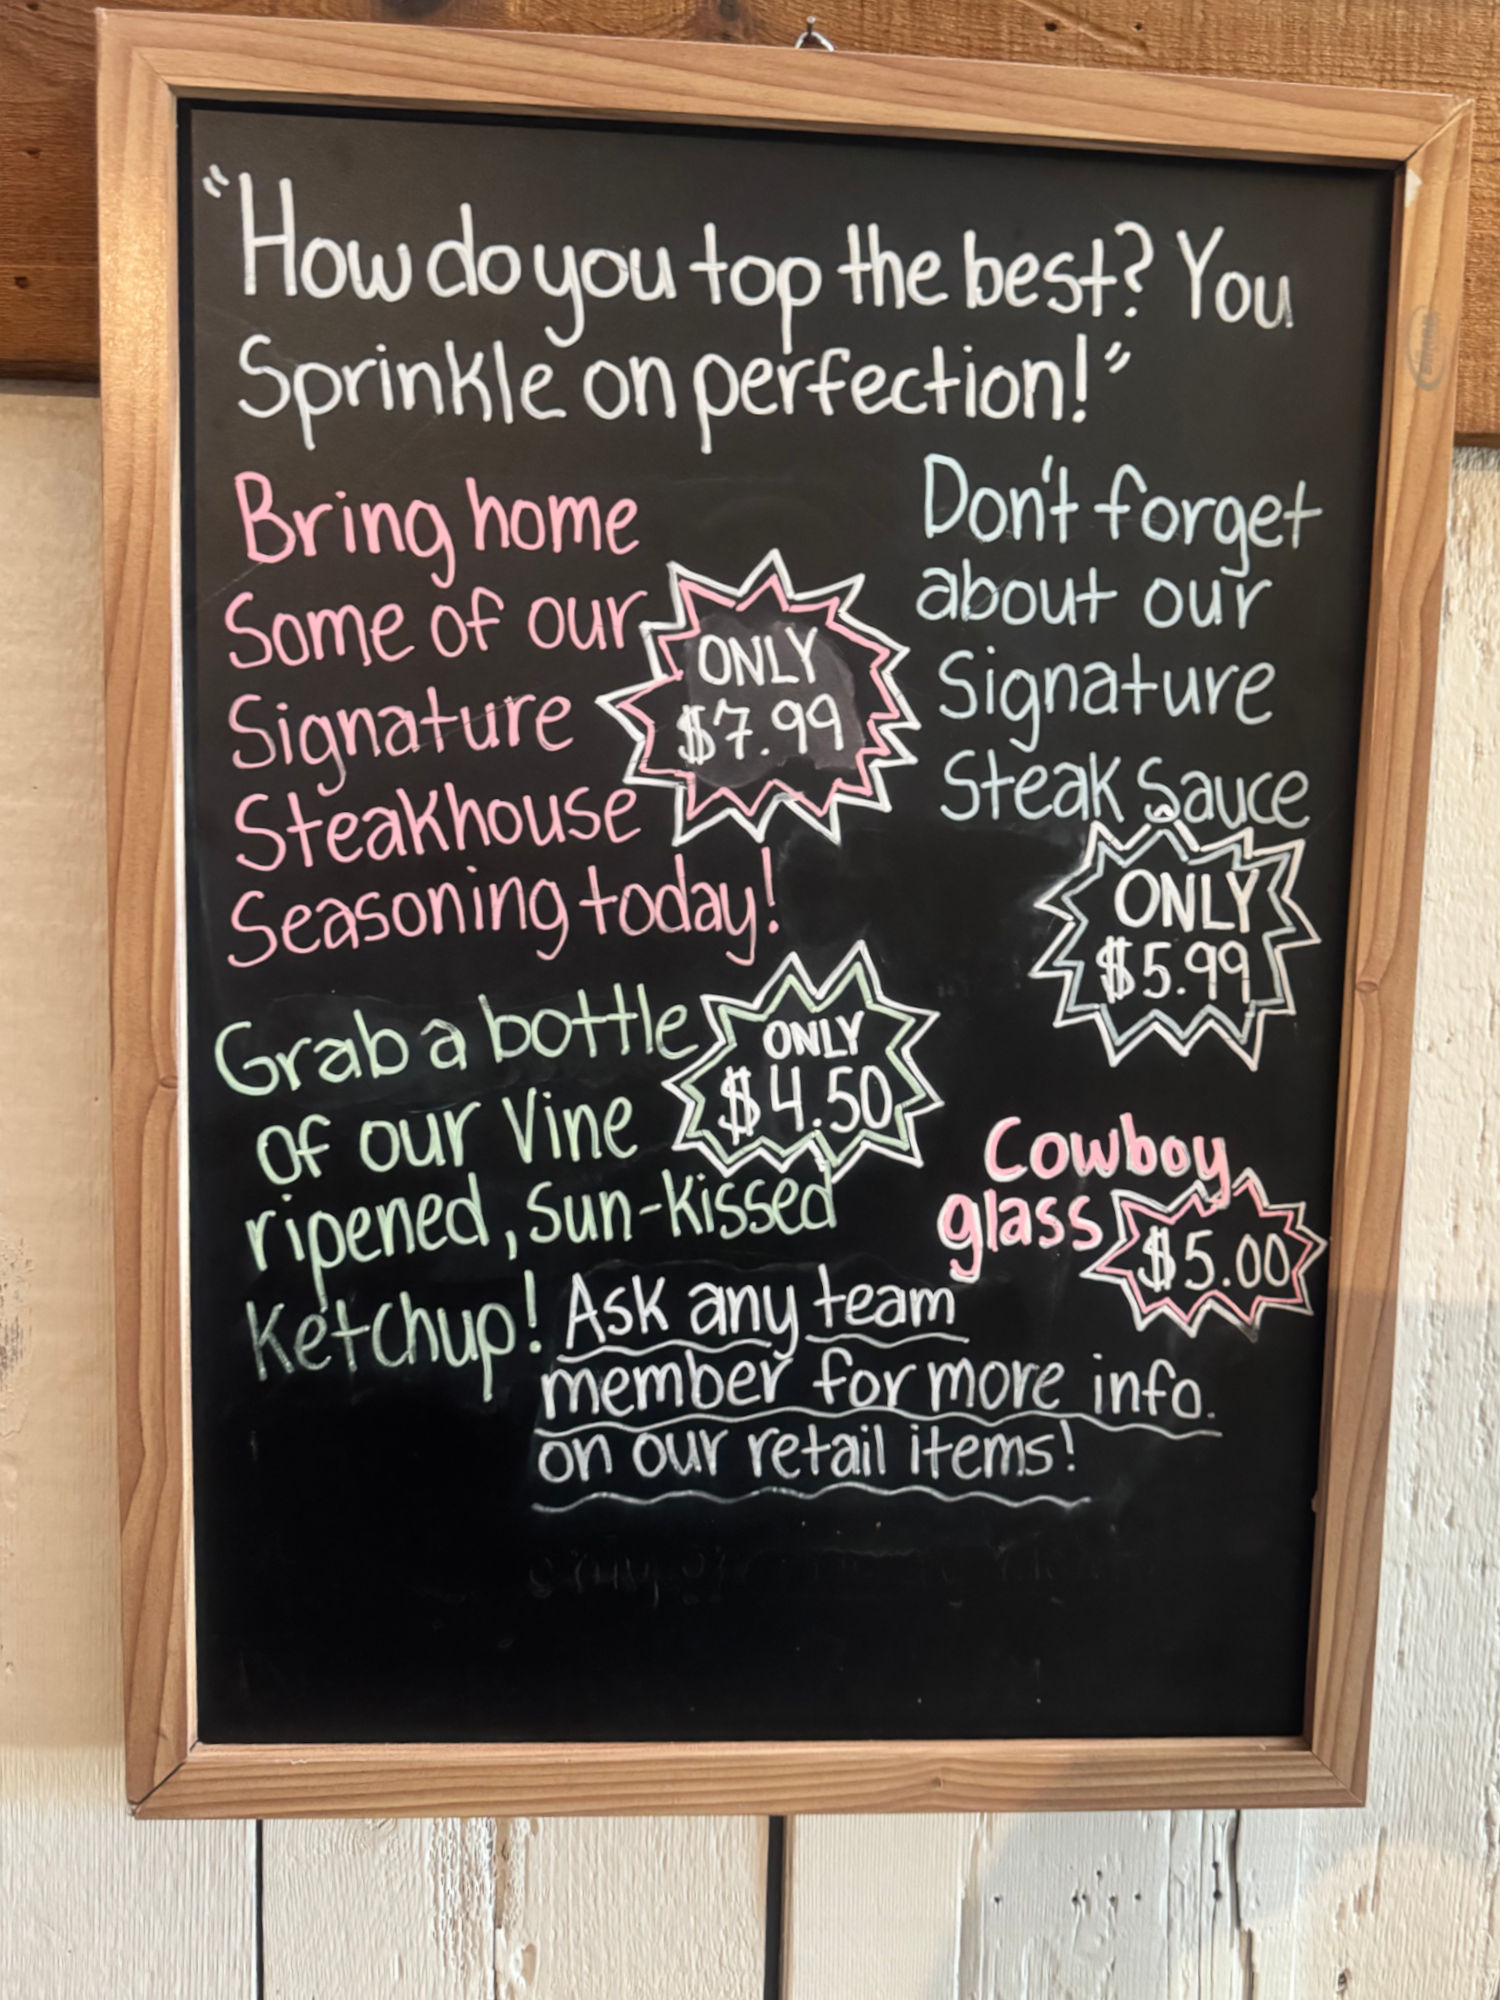 "How do you top the best? You
Sprinkle on perfection!"
Bring home
Some of our
Signature
Steakhouse
Seasoning today!
ONLY
$7.99
Don't forget
about our
Signature
Steak Sauce
ONLY
$5.99
Grab a bottle
of our Vine
ripened, Sun-kissed
Ketchup!
ONLY
$4.50
Cowboy
glass
$5.00
Ask any team
member for more info.
on our retail items!